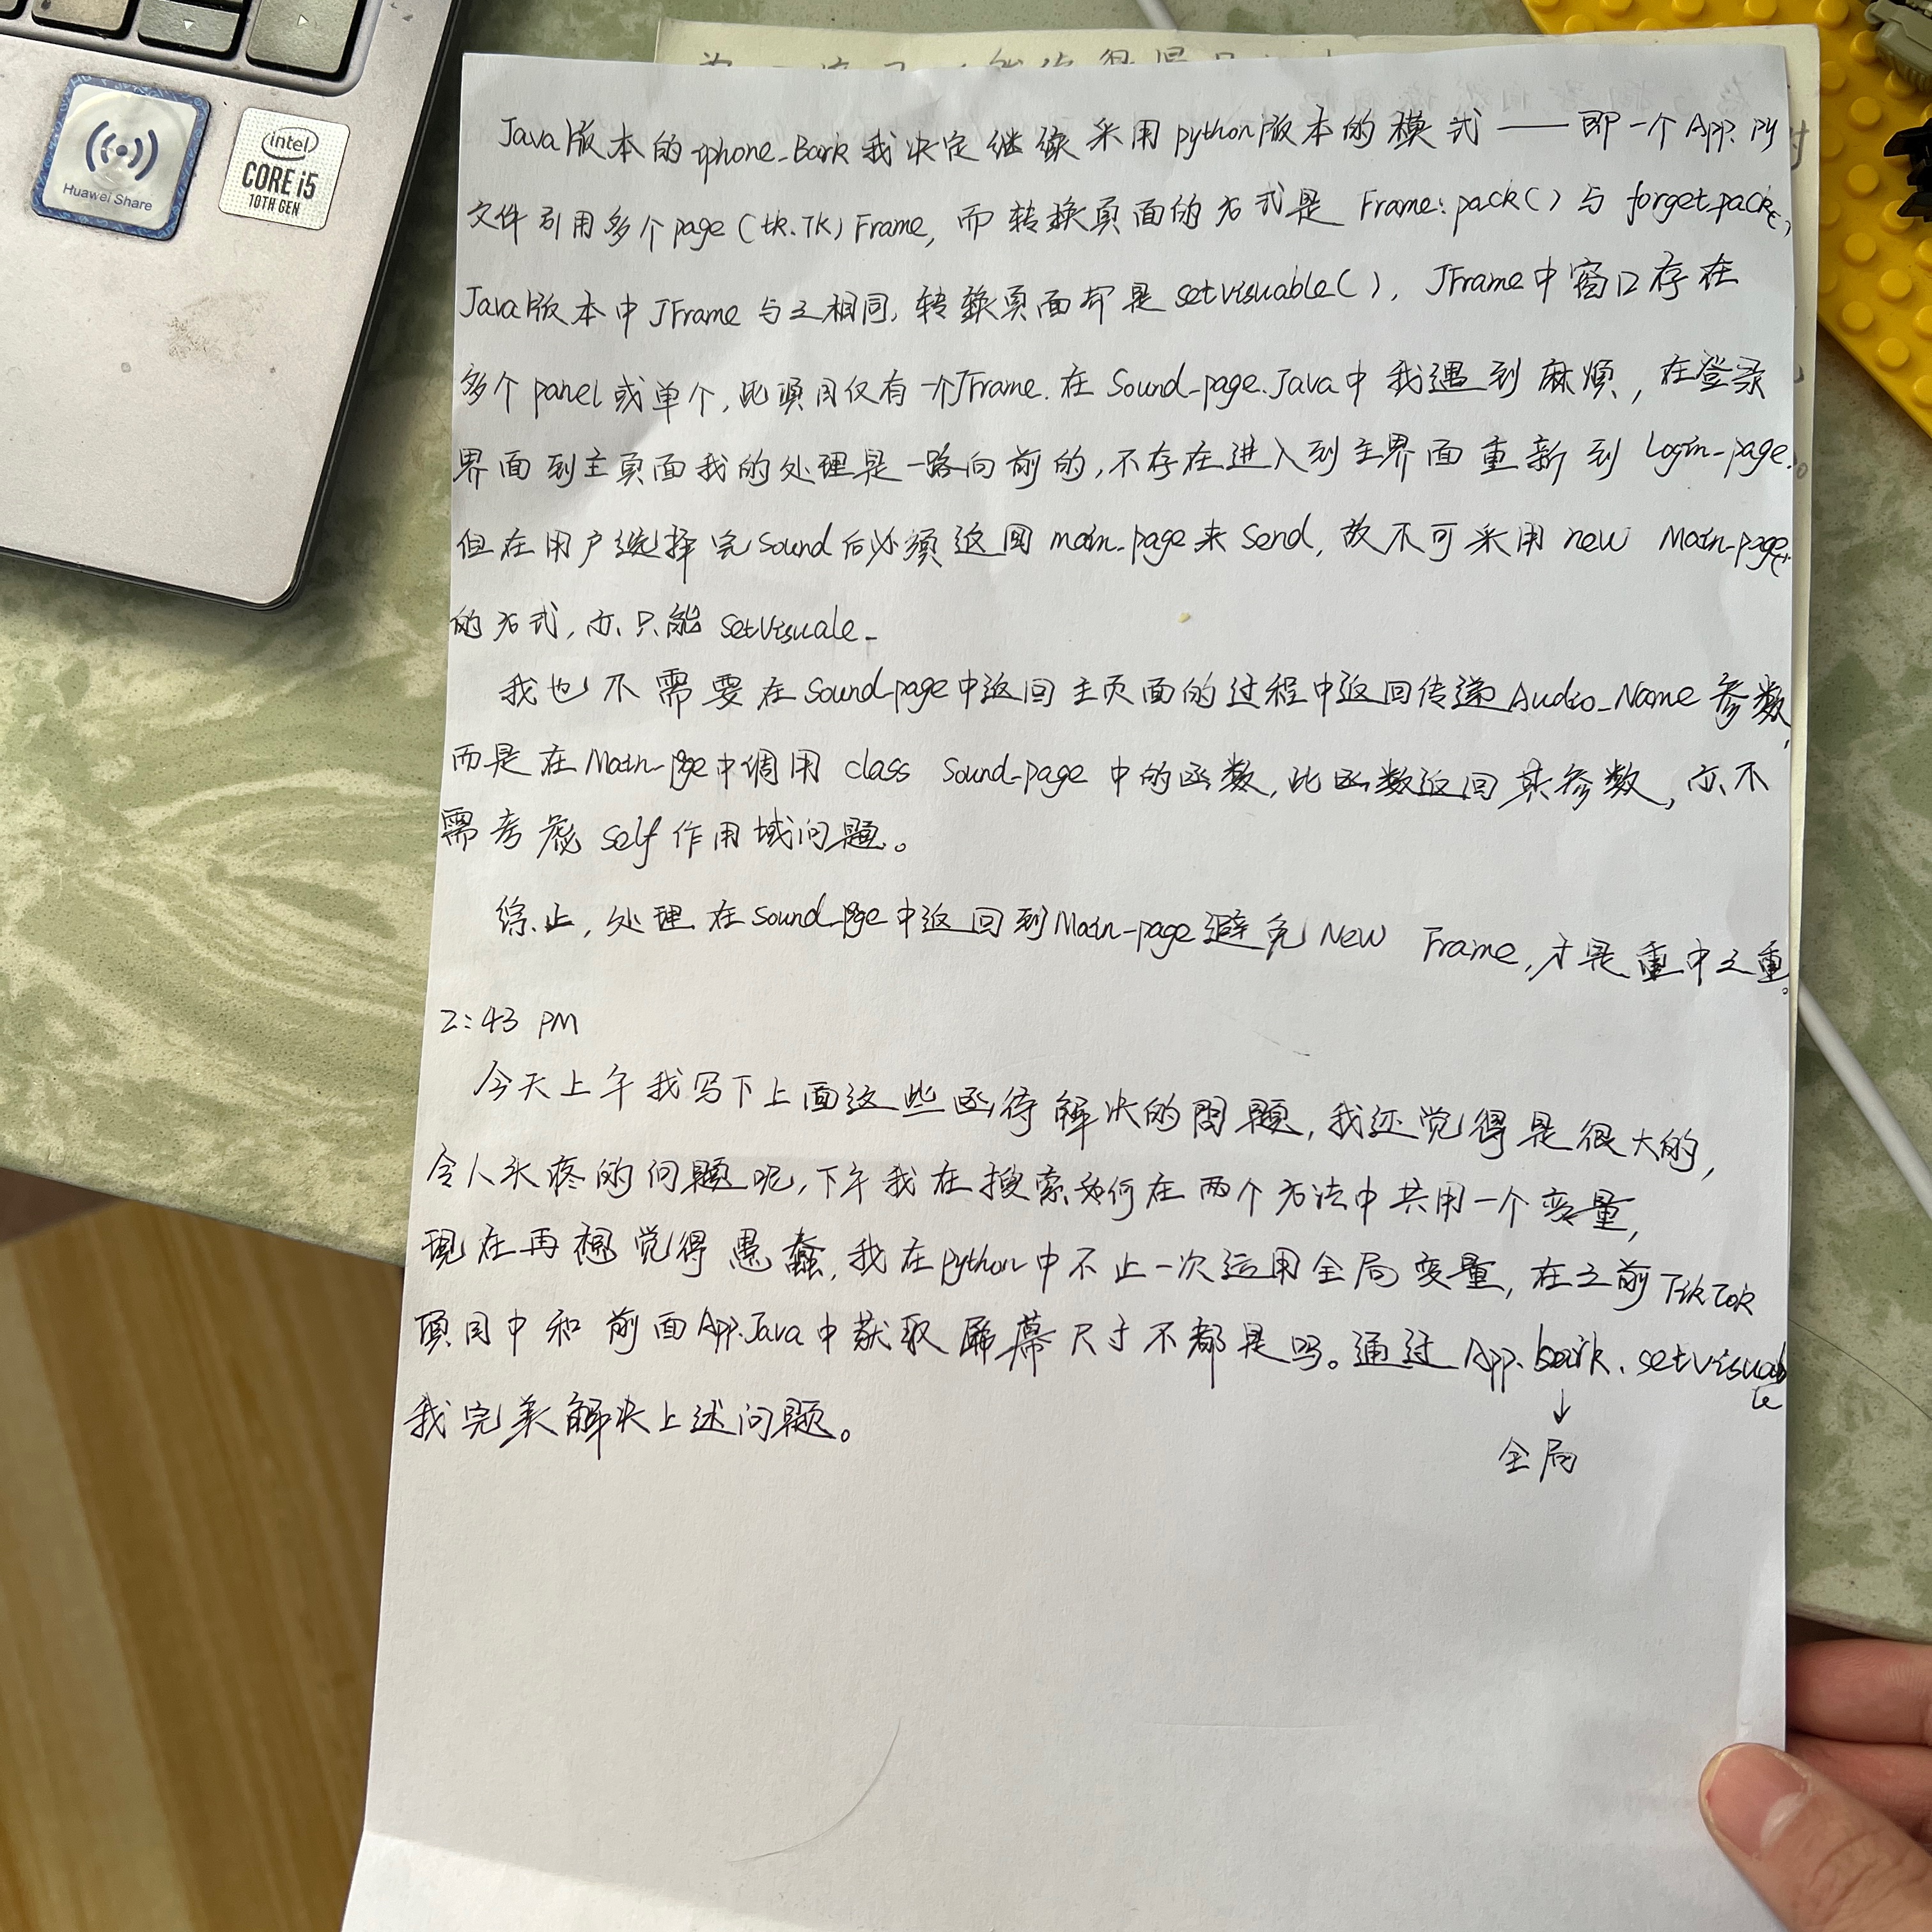 Huawei Share
intel
CORE i5
10TH GEN
Java版本的iphone_Bark我决定继续采用python版本的模式——即一个App.py
文件引用多个page(tk.TK)Frame,而转换页面的方式是Frame.pack()与forget.pack(),
Java版本中JFrame与之相同,转换页面却是setvisuable(),JFrame中窗口存在
多个panel或单个,此项目仅有一个JFrame.在Sound_page.Java中我遇到麻烦,在登录
界面到主页面我的处理是一路向前的,不存在进入到主界面重新到Login_page。
但在用户选择完Sound后必须返回main_page来Send,故不可采用new Main_page()
的方式,亦只能setVisuale_
我也不需要在Sound_page中返回主页面的过程中返回传递Audio_Name参数,
而是在Main_page中调用class Sound_page中的函数,此函数返回其参数,亦不
需考虑self作用域问题。
综上,处理在Sound_page中返回到Main_page避免New Frame,才是重中之重。
2:43 PM
今天上午我写下上面这些函待解决的问题,我还觉得是很大的,
令人头疼的问题呢,下午我在搜索如何在两个方法中共用一个变量,
现在再想觉得愚蠢,我在python中不止一次运用全局变量,在之前TikTok
项目中和前面App.Java中获取屏幕尺寸不都是吗。通过App.bark.setvisuable
我完美解决上述问题。
↓
全局